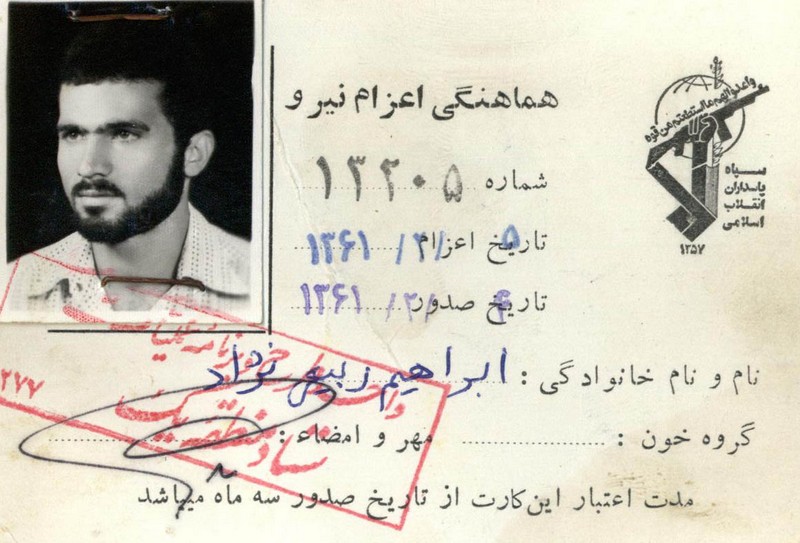 هماهنگی اعزام نیرو
شماره ۱۳۲۰۵
تاریخ اعزام ۵ /۲/ ۱۳۶۱
تاریخ صدور ۴ /۲/ ۱۳۶۱
نام و نام خانوادگی : ابراهیم ربیع نژاد
گروه خون :
مهر و امضاء :
مدت اعتبار این‌کارت از تاریخ صدور سه ماه میباشد
واعدوا لهم ما استطعتم من قوه
سپاه
پاسداران
انقلاب
اسلامی
۱۳۵۷
ستاد منطقه یک
۲۷۷